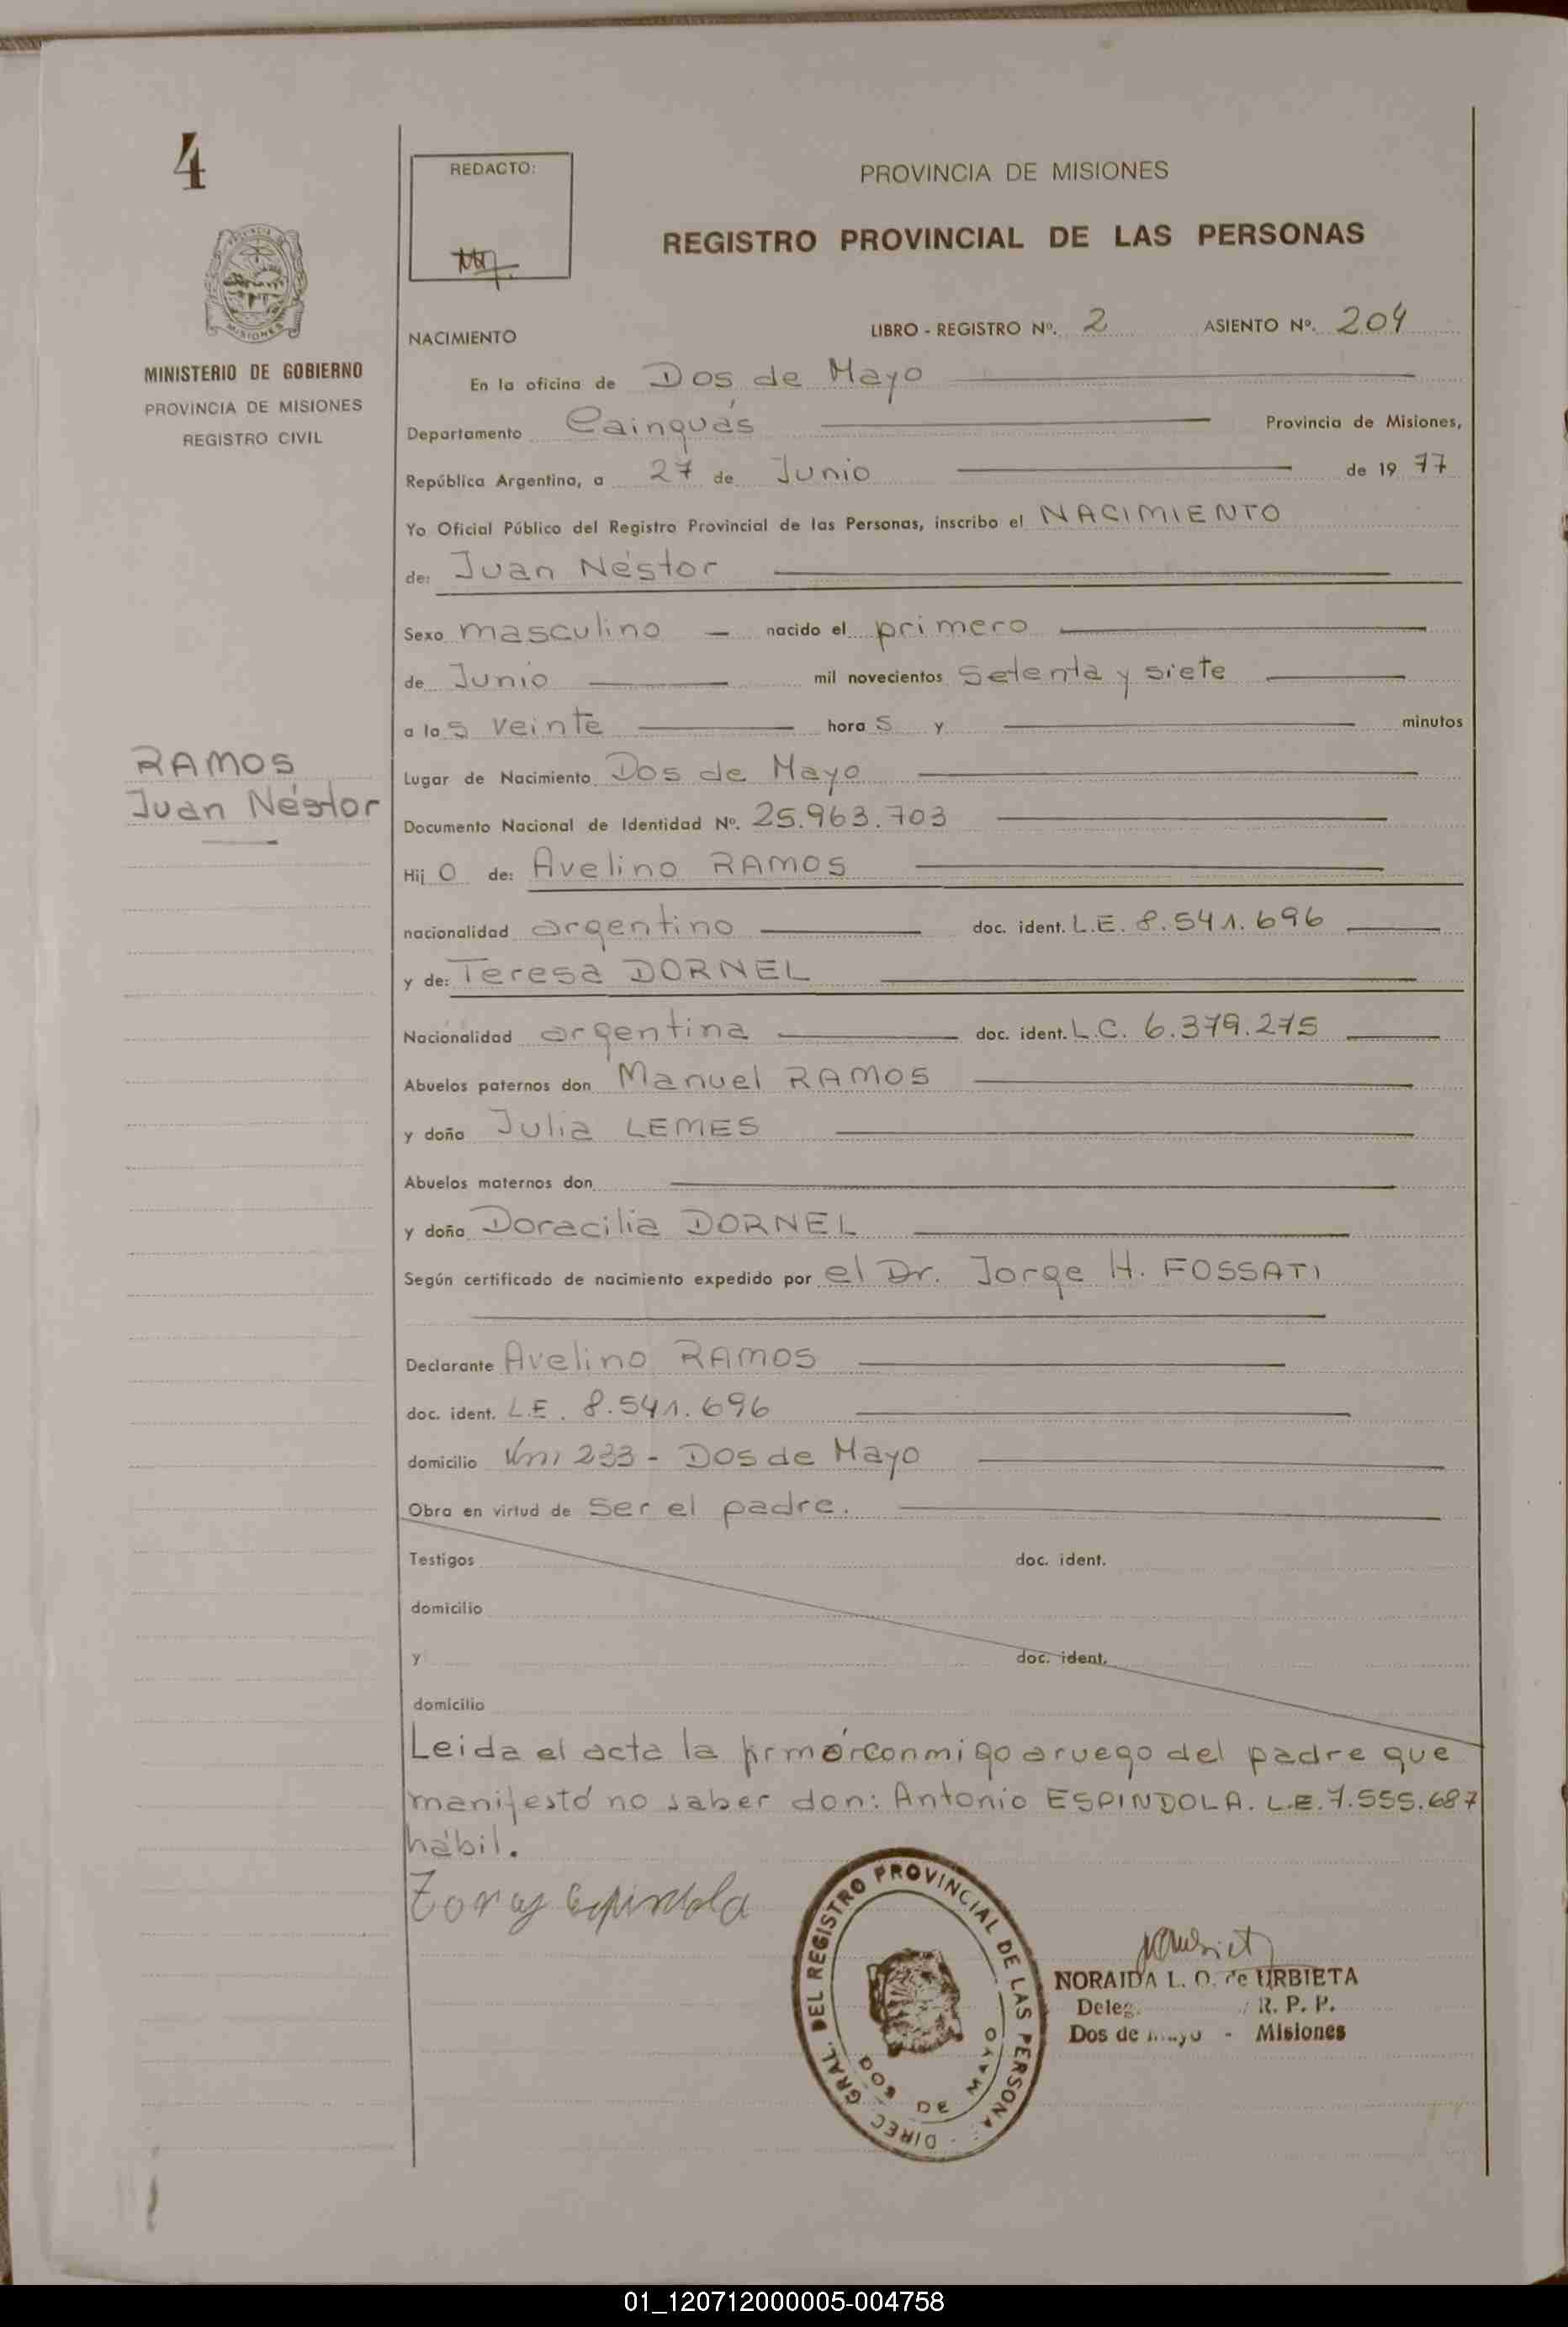 4
REDACTO:
PROVINCIA DE MISIONES
REGISTRO PROVINCIAL DE LAS PERSONAS
PROVINCIA DE
MISIONES
MINISTERIO DE GOBIERNO
PROVINCIA DE MISIONES
REGISTRO CIVIL
NACIMIENTO LIBRO - REGISTRO Nº. 2 ASIENTO Nº. 204
En la oficina de Dos de Mayo
Departamento Cainguás Provincia de Misiones,
República Argentina, a 27 de Junio de 19 77
Yo Oficial Público del Registro Provincial de las Personas, inscribo el NACIMIENTO
de: Juan Néstor
Sexo masculino — nacido el primero
de Junio mil novecientos setenta y siete
a las veinte horas y minutos
RAMOS
Juan Néstor
Lugar de Nacimiento Dos de Mayo
Documento Nacional de Identidad Nº. 25.963.703
Hijo de: Avelino RAMOS
nacionalidad argentino doc. ident. L.E. 8.541.696
y de: Teresa DORNEL
Nacionalidad argentina doc. ident. L.C. 6.379.275
Abuelos paternos don Manuel RAMOS
y doña Julia LEMES
Abuelos maternos don
y doña Doracilia DORNEL
Según certificado de nacimiento expedido por el Dr. Jorge H. FOSSATI
Declarante Avelino RAMOS
doc. ident. L.E. 8.541.696
domicilio Km 233 - Dos de Mayo
Obra en virtud de ser el padre.
Testigos doc. ident.
domicilio
y doc. ident.
domicilio
Leida el acta la conmigo a ruego del padre que
manifestó no saber don: Antonio ESPINDOLA. L.E. 7.555.687
hábil.
Espindola
DIREC GRAL. DEL REGISTRO PROVINCIAL DE LAS PERSONA
DOS DE MAYO
NORAIDA L. O. de URBIETA
Deleg. R. P. P.
Dos de Mayo - Misiones
01_120712000005-004758